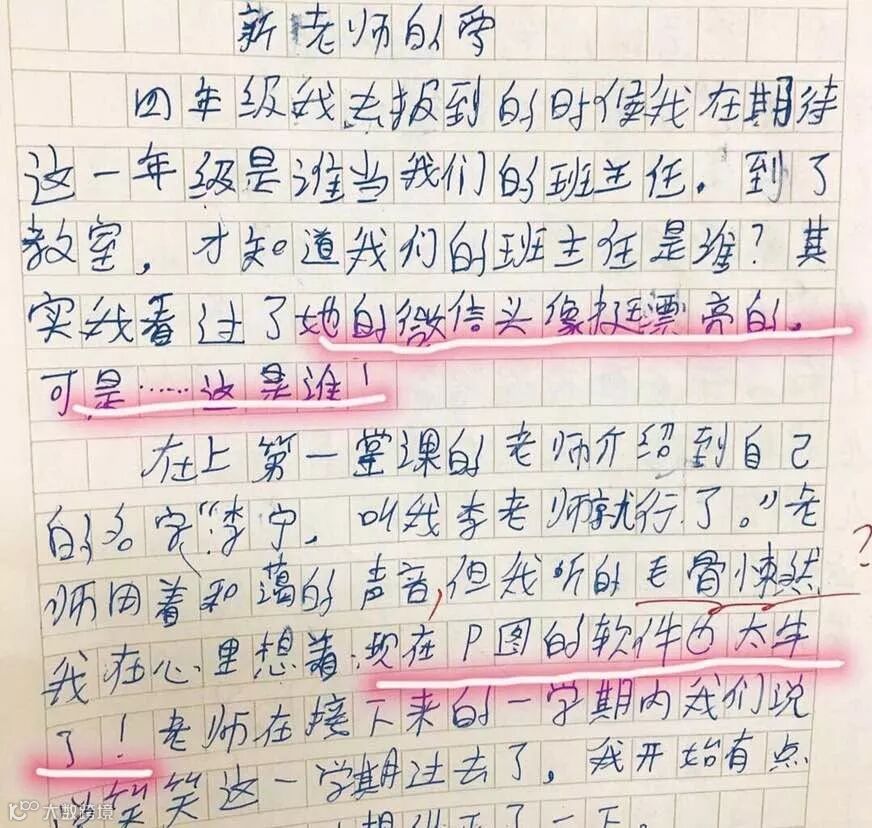 新老师的雪
四年级我去报到的时候我在期待
这一年级是谁当我们的班主任，到了
教室，才知道我们的班主任是谁？其
实我看过了她的微信头像挺漂亮的，
可是……这是谁！
在上第一堂课的老师介绍到自己
的名字“李宁，叫我李老师就行了。”老
师用着和蔼的声音，但我听的毛骨悚然
？
我在心里想着：现在P图的软件也太牛
了！老师在接下来的一学期内我们说
说笑笑这一学期过去了，我开始有点
了一下。
大数跨境